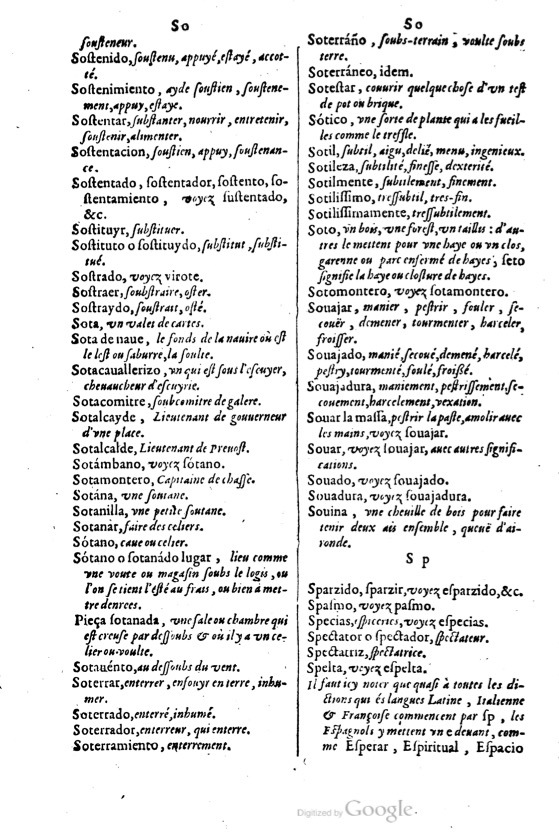 So
ſouſteneur.
Soſtenido, ſouſtenu, appuyé, eſtayé, accot-
té.
Soſtenimiento, ayde ſouſtien, ſouſtene-
ment, appuy, eſtaye.
Soſtentar, ſubſtanter, nourrir, entretenir,
ſouſtenir, alimenter.
Soſtentacion, ſouſtien, appuy, ſouſtenan-
ce.
Soſtentado, ſoſtentador, ſoſtento, ſo-
ſtentamiento, voyez ſuſtentado,
&c.
Soſtituyr, ſubſtituer.
Soſtituto o ſoſtituydo, ſubſtitut, ſubſti-
tué.
Soſtrado, voyez virote.
Soſtraer, ſoubſtraire, oſter.
Soſtraydo, ſouſtrait, oſté.
Sota, vn vales de cartes.
Sota de naue, le fonds de la nauire où eſt
le leſt ou ſaburre, la ſoulte.
Sotacauallerizo, vn qui eſt ſous l'eſcuyer,
cheuaucheur d'eſcuyrie.
Sotacomitre, ſoubcomitre de galere.
Sotalcayde, Lieutenant de gouuerneur
d'vne place.
Sotalcalde, Lieutenant de Preuoſt.
Sotámbano, voyez ſótano.
Sotamontero, Capitaine de chaſſe.
Sotána, vne ſoutane.
Sotanilla, vne petite ſoutane.
Sotanar, faire des celiers.
Sótano, caue ou celier.
Sótano o ſotanádo lugar, lieu comme
vne voute ou magaſin ſoubs le logis, ou
l'on ſe tient l'eſté au frais, ou bien à met-
tre denrees.
Pieça ſotanada, vne ſale ou chambre qui
eſt creuſe par deſſoubs & où il y a vn ce-
lier ou voulte.
Sotauénto, au deſſoubs du vent.
Soterrar, enterrer, enfouyr en terre, inhu-
mer.
Soterrado, enterré, inhumé.
Soterrador, enterreur, qui enterre.
Soterramiento, enterrement.
So
Soterráño, ſoubs-terrain, voulte ſoubs
terre.
Soterráneo, idem.
Soteſtar, couurir quelque choſe d'vn teſt
de pot ou brique.
Sótico, vne ſorte de plante qui a les fueil-
les comme le treffle.
Sotil, ſubtil, aigu, delié, menu, ingenieux.
Sotileza, ſubtilité, fineſſe, dexterité.
Sotilmente, ſubtilement, finement.
Sotiliſſimo, treſſubtil, tres-fin.
Sotiliſſimamente, treſſubtilement.
Soto, vn bois, vne foreſt, vn taillis: d'au-
tres le mettent pour vne haye ou vn clos,
garenne ou parc enfermé de hayes, ſeto
ſignifie la haye ou cloſture de hayes.
Sotomontero, voyez ſotamontero.
Souajar, manier, peſtrir, fouler, ſe-
couër, demener, tourmenter, harceler,
froiſſer.
Souajado, manié, ſecoué, demené, harcelé,
peſtry, tourmenté, foulé, froiſſé.
Souajadura, maniement, peſtriſſement, ſe-
couement, harcelement, vexation.
Souar la maſſa, peſtrir la paſte, amolir auec
les mains, voyez ſouajar.
Souar, voyez ſouajar, auec autres ſignifi-
cations.
Souado, voyez ſouajado.
Souadura, voyez ſouajadura.
Souina, vne cheuille de bois pour faire
tenir deux ais enſemble, queuë d'ai-
ronde.
S p
Sparzido, ſparzir, voyez eſparzido, &c.
Paſmo, voyez paſmo.
Specias, ſpiceries, voyez eſpecias.
Spectator o ſpectador, ſpectateur.
Spectatriz, ſpectatrice.
Spelta, voyez eſpelta.
Il faut icy noter que quaſi à toutes les di-
ctions qui és langues Latine, Italienne
& Françoiſe commencent par ſp, les
Eſpagnols y mettent vn e deuant, com-
me Eſperar, Eſpiritual, Eſpacio
Digitized by Google